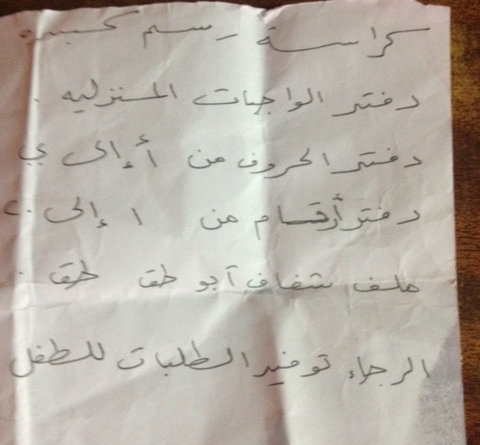 كراسة رسم كبيره
دفتر الواجبات المنزليه .
دفتر الحروف من أ إلى ي
دفتر أرقام من ١ إلى ٢٠
ملف شفاف أبو طق طق .
الرجاء توفير الطلبات للطفل